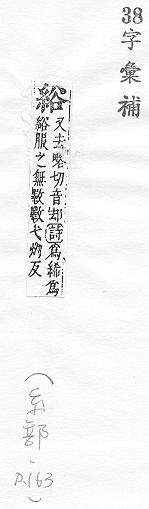 38字彙補
綌
又去略切音却詩爲絺爲
綌服之無斁斁弋灼反
(糸部.
p.163
)